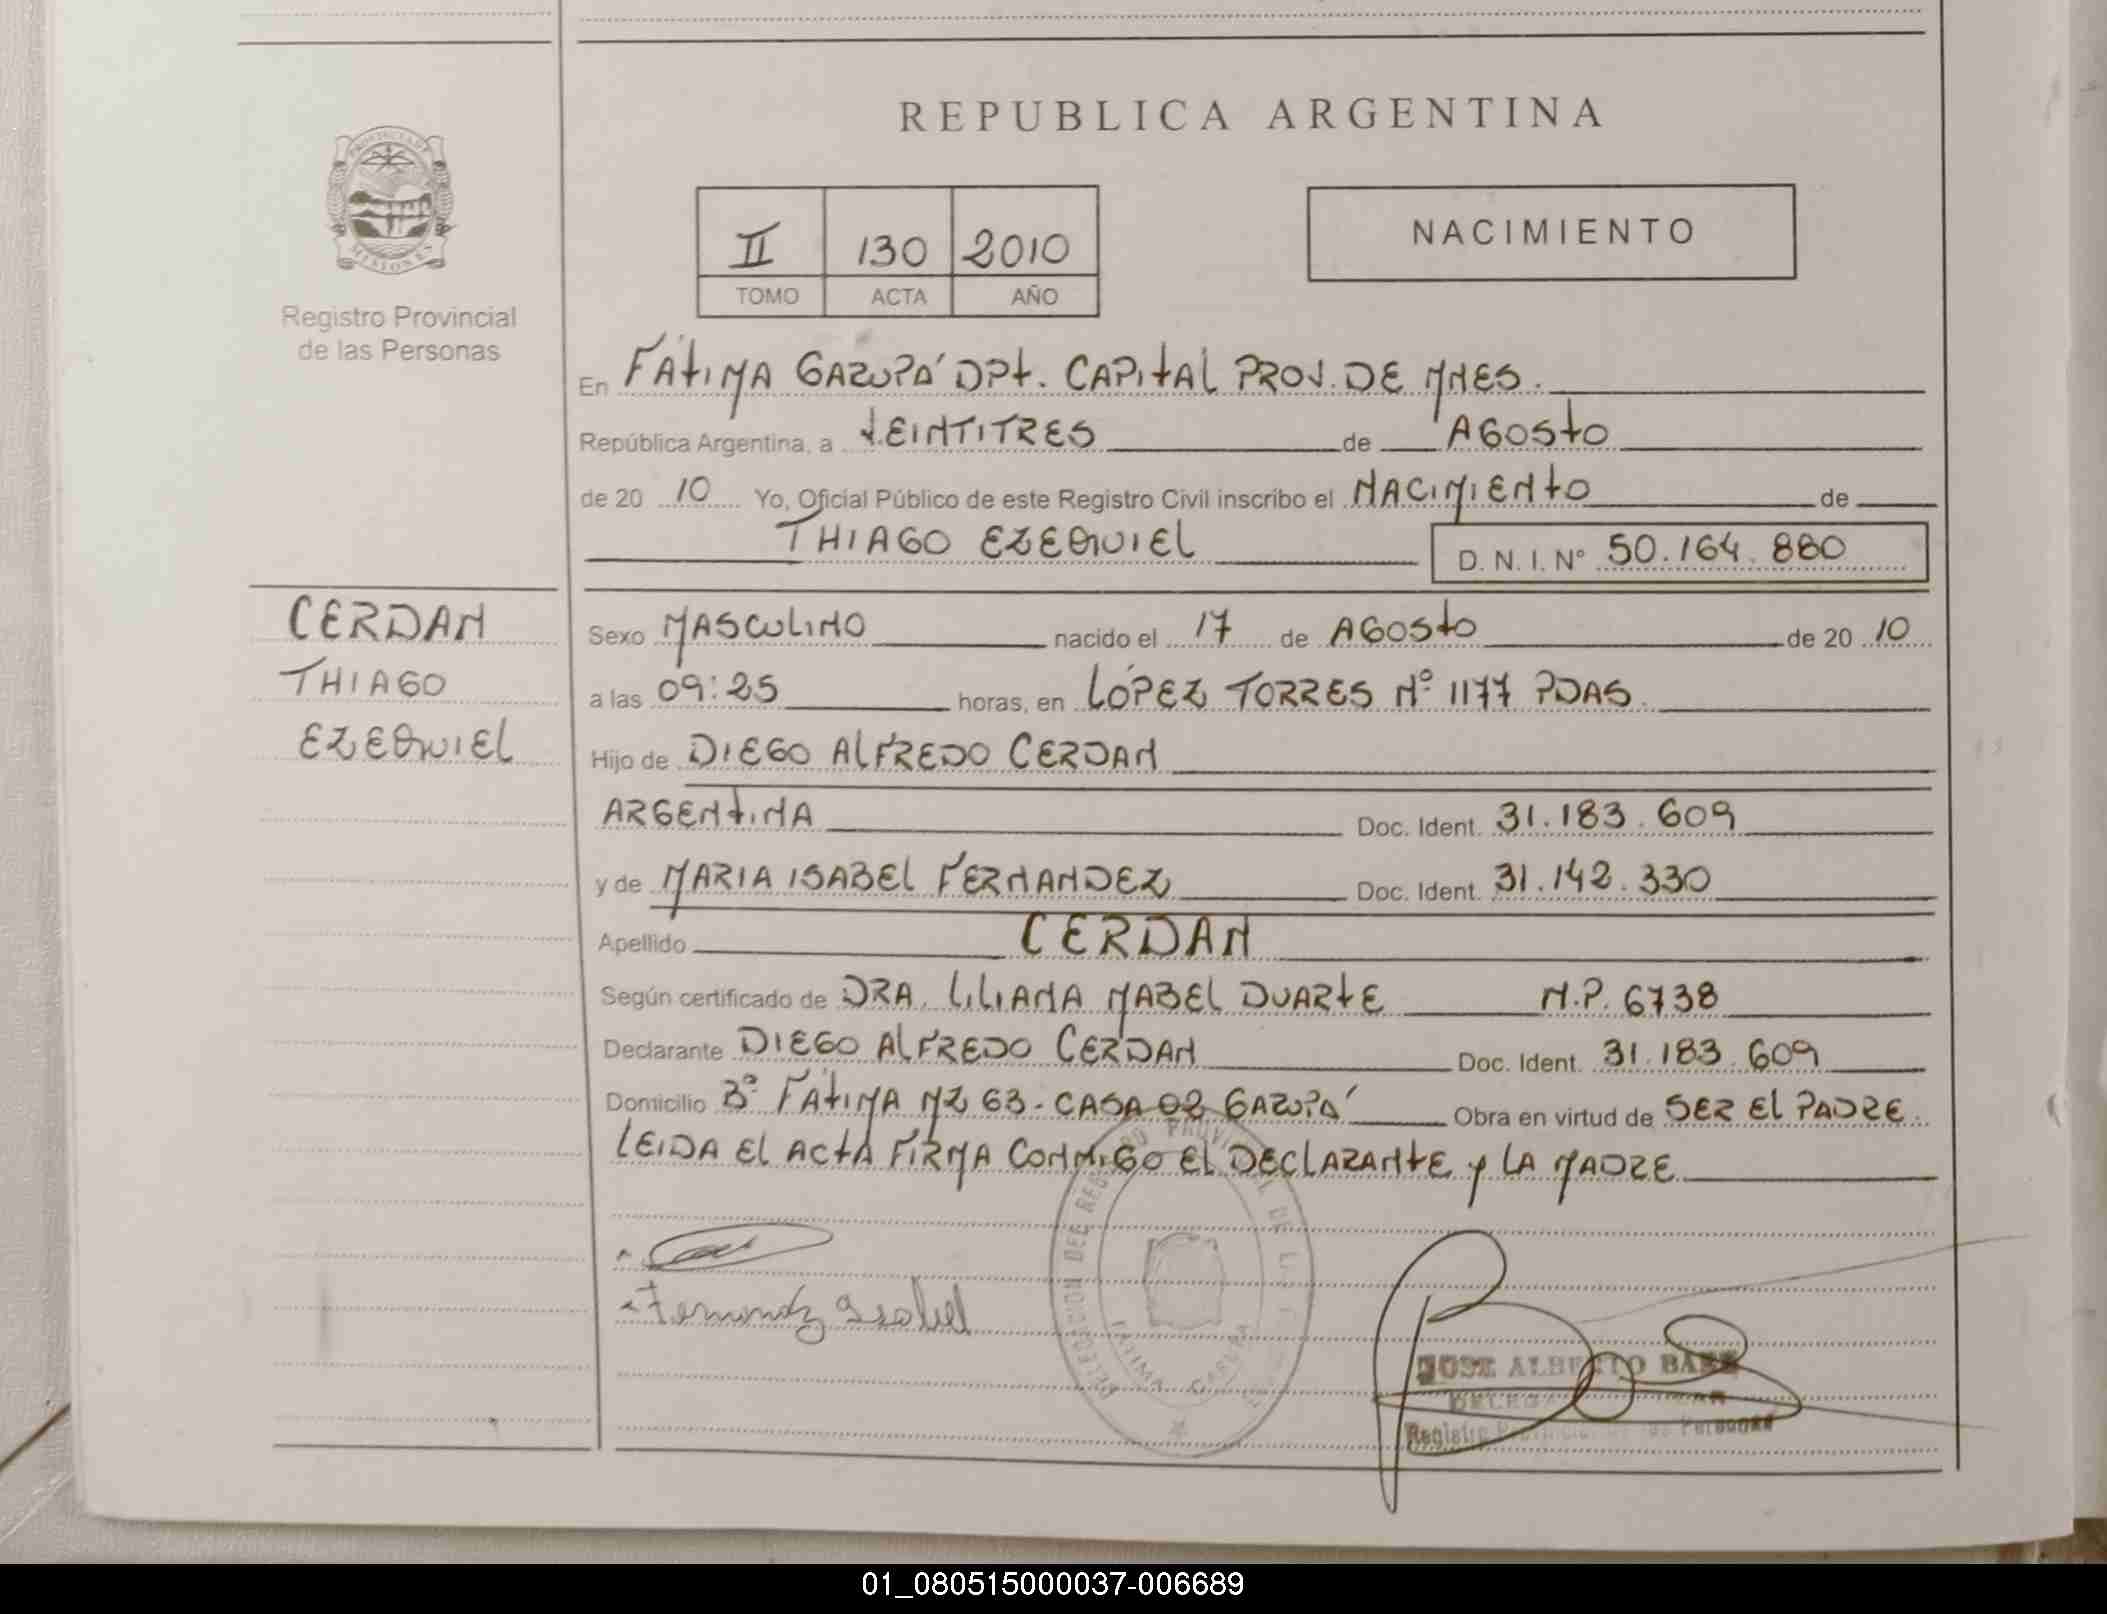 REPUBLICA ARGENTINA
PROVINCIA DE
MISIONES
Registro Provincial
de las Personas
II 130 2010
TOMO ACTA AÑO
NACIMIENTO
En FÁTIMA GARUPÁ DPT. CAPITAL PROV. DE MNES.
República Argentina, a VEINTITRES de AGOSTO
de 20 10 Yo, Oficial Público de este Registro Civil inscribo el NACIMIENTO de
THIAGO EZEQUIEL D. N. I. Nº 50.164.880
CERDAN
THIAGO
EZEQUIEL
Sexo MASCULINO nacido el 17 de AGOSTO de 20 10
a las 09:25 horas, en LÓPEZ TORRES Nº 1177 PDAS.
Hijo de DIEGO ALFREDO CERDAN
ARGENTINA Doc. Ident. 31.183.609
y de MARIA ISABEL FERNANDEZ Doc. Ident. 31.142.330
Apellido CERDAN
Según certificado de DRA. LILIANA MABEL DUARTE M.P. 6738
Declarante DIEGO ALFREDO CERDAN Doc. Ident. 31.183.609
Domicilio Bº FÁTIMA MZ 63 - CASA 02 GARUPÁ Obra en virtud de SER EL PADRE.
LEIDA EL ACTA FIRMA CONMIGO EL DECLARANTE Y LA MADRE
Fernandez Isabel
DELEGACION DEL REGISTRO PROVINCIAL DE
FATIMA GARUPA
JOSE ALBERTO BAEZ
Registro Provincial de las Personas
01_080515000037-006689